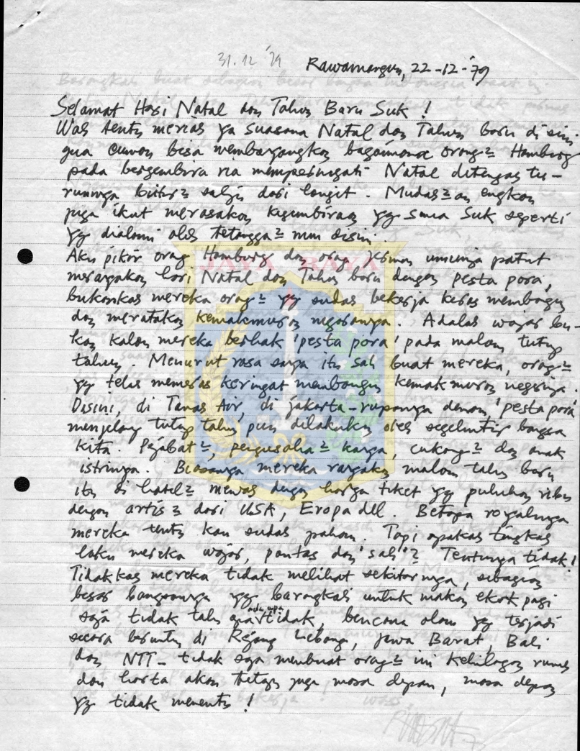 31.12 '79
Rawamangun, 22-12-'79
Selamat Hari Natal dan Tahun Baru Suk !
Wah tentu meriah ya suasana Natal dan Tahun baru di sini
gua cuman bisa membayangkan bagaimana orang² Hamburg
pada bergembira ria memperingati Natal ditengah tu-
runnya butir² salju dari langit. Mudah²an engkau
juga ikut merasakan kegembiraan yg sama Suk seperti
yg dialami oleh tetangga²mu disini.
Aku pikir orang Hamburg dan orang Jerman umumnya patut
merayakan hari Natal dan Tahun baru dengan pesta pora,
bukankah mereka orang² yg sudah bekerja keras membangun
dan meratakan kemakmuran negaranya. Adalah wajar bu-
kan kalau mereka berhak 'pesta pora' pada malam tutup
tahun. Menurut rasa saya itu sah buat mereka, orang²
yg telah memeras keringat membangun kemakmuran negrinya.
Disini, di Tanah Air, di Jakarta - rupanya demam 'pesta pora'
menjelang tutup tahun pun dilakukan oleh segelintir bangsa
kita. Pejabat², pengusaha² kaya, cukong² dan anak
istrinya. Biasanya mereka rayakan malam tahun baru
itu di hotel² mewah dengan harga tiket yg puluhan ribu
dengan artis² dari USA, Eropa dll. Betapa royalnya
mereka tentu kau sudah paham. Tapi apakah tingkah
laku mereka wajar, pantas dan 'sah'? Tentunya tidak!
Tidakkah mereka tidak melihat sekitarnya, sebagian
besar bangsanya yg barangkali untuk makan esok pagi
saja tidak tahu apa tidak, bencana alam yg terjadi
secara beruntun di Rejang Lebong, Jawa Barat, Bali
dan NTT - tidak saja membuat orang² ini kehilangan rumah
dan harta akan tetapi juga masa depan, masa depan
yg tidak menentu !